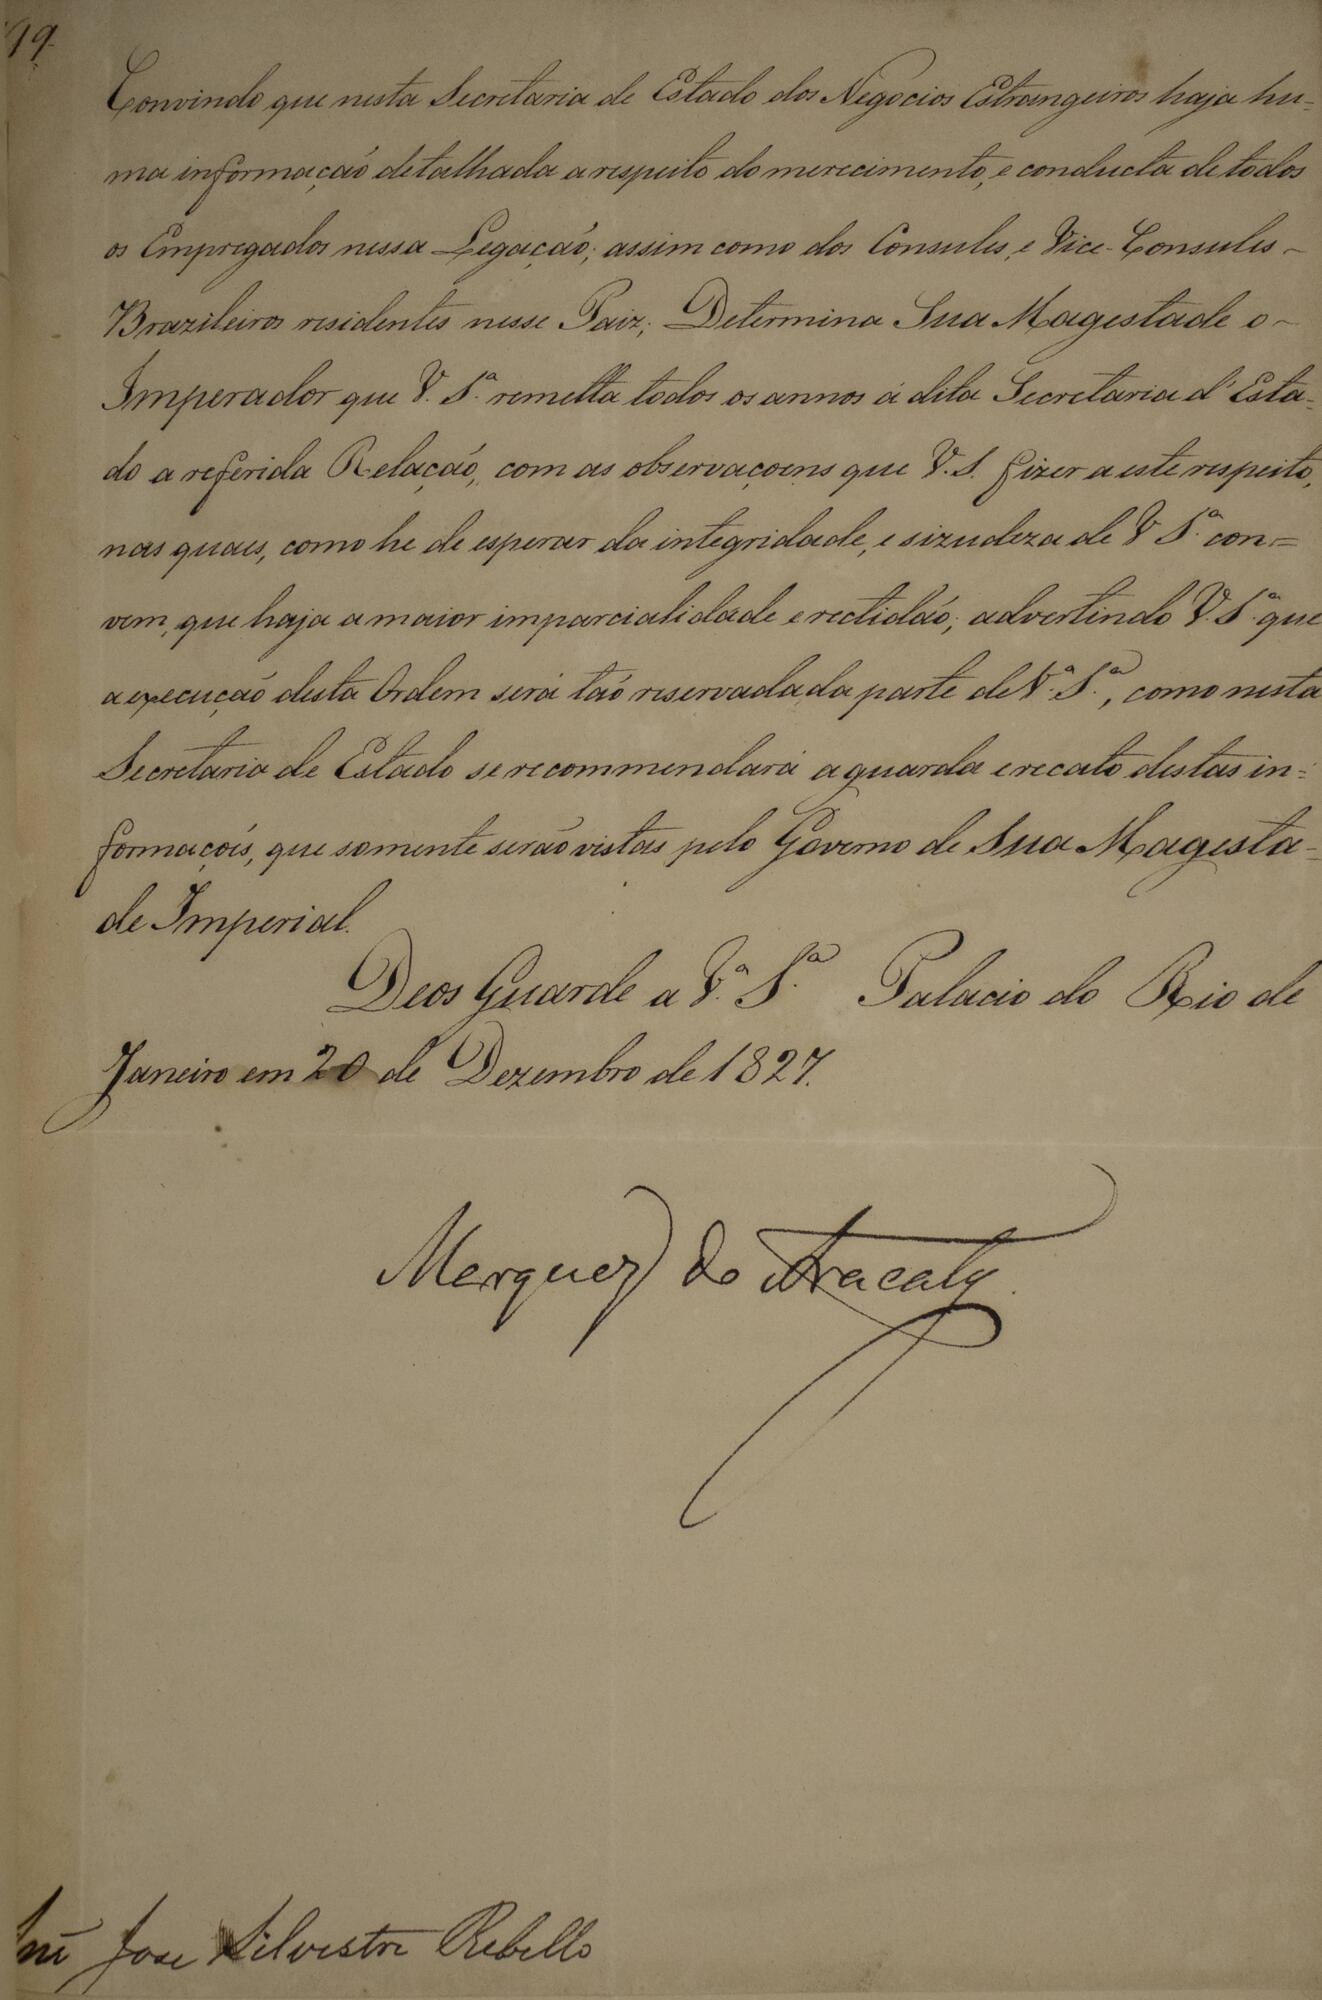 19.
Convindo que nesta Secretaria de Estado dos Negocios Estrangeiros haja hu=
ma informação detalhada a respeito do merecimento, e conducta de todos
os Empregados nessa Legação; assim como dos Consules, e Vice-Consules ~
Brazileiros residentes nesse Paiz; Determina Sua Magestade o ~
Imperador que V. Sª. remetta todos os annos á dita Secretaria d'Esta=
do a referida Relação, com as observaçoens que V. S. fizer a este respeito,
nas quaes, como he de esperar da integridade, e sizudeza de V Sª. con=
vem, que haja a maior imparcialidade e rectidão; advertindo V. Sª. que
a execução desta Ordem será tão reservada da parte de Vª. Sª., como nesta
Secretaria de Estado se recommendará a guarda e recato destas in=
formações, que somente serão vistas pelo Governo de Sua Magesta=
de Imperial.
Deos Guarde a Vª. Sª. Palacio do Rio de
Janeiro em 20 de Dezembro de 1827.
Marquez do Aracaty.
Snr. Jose Silvestre Rebello